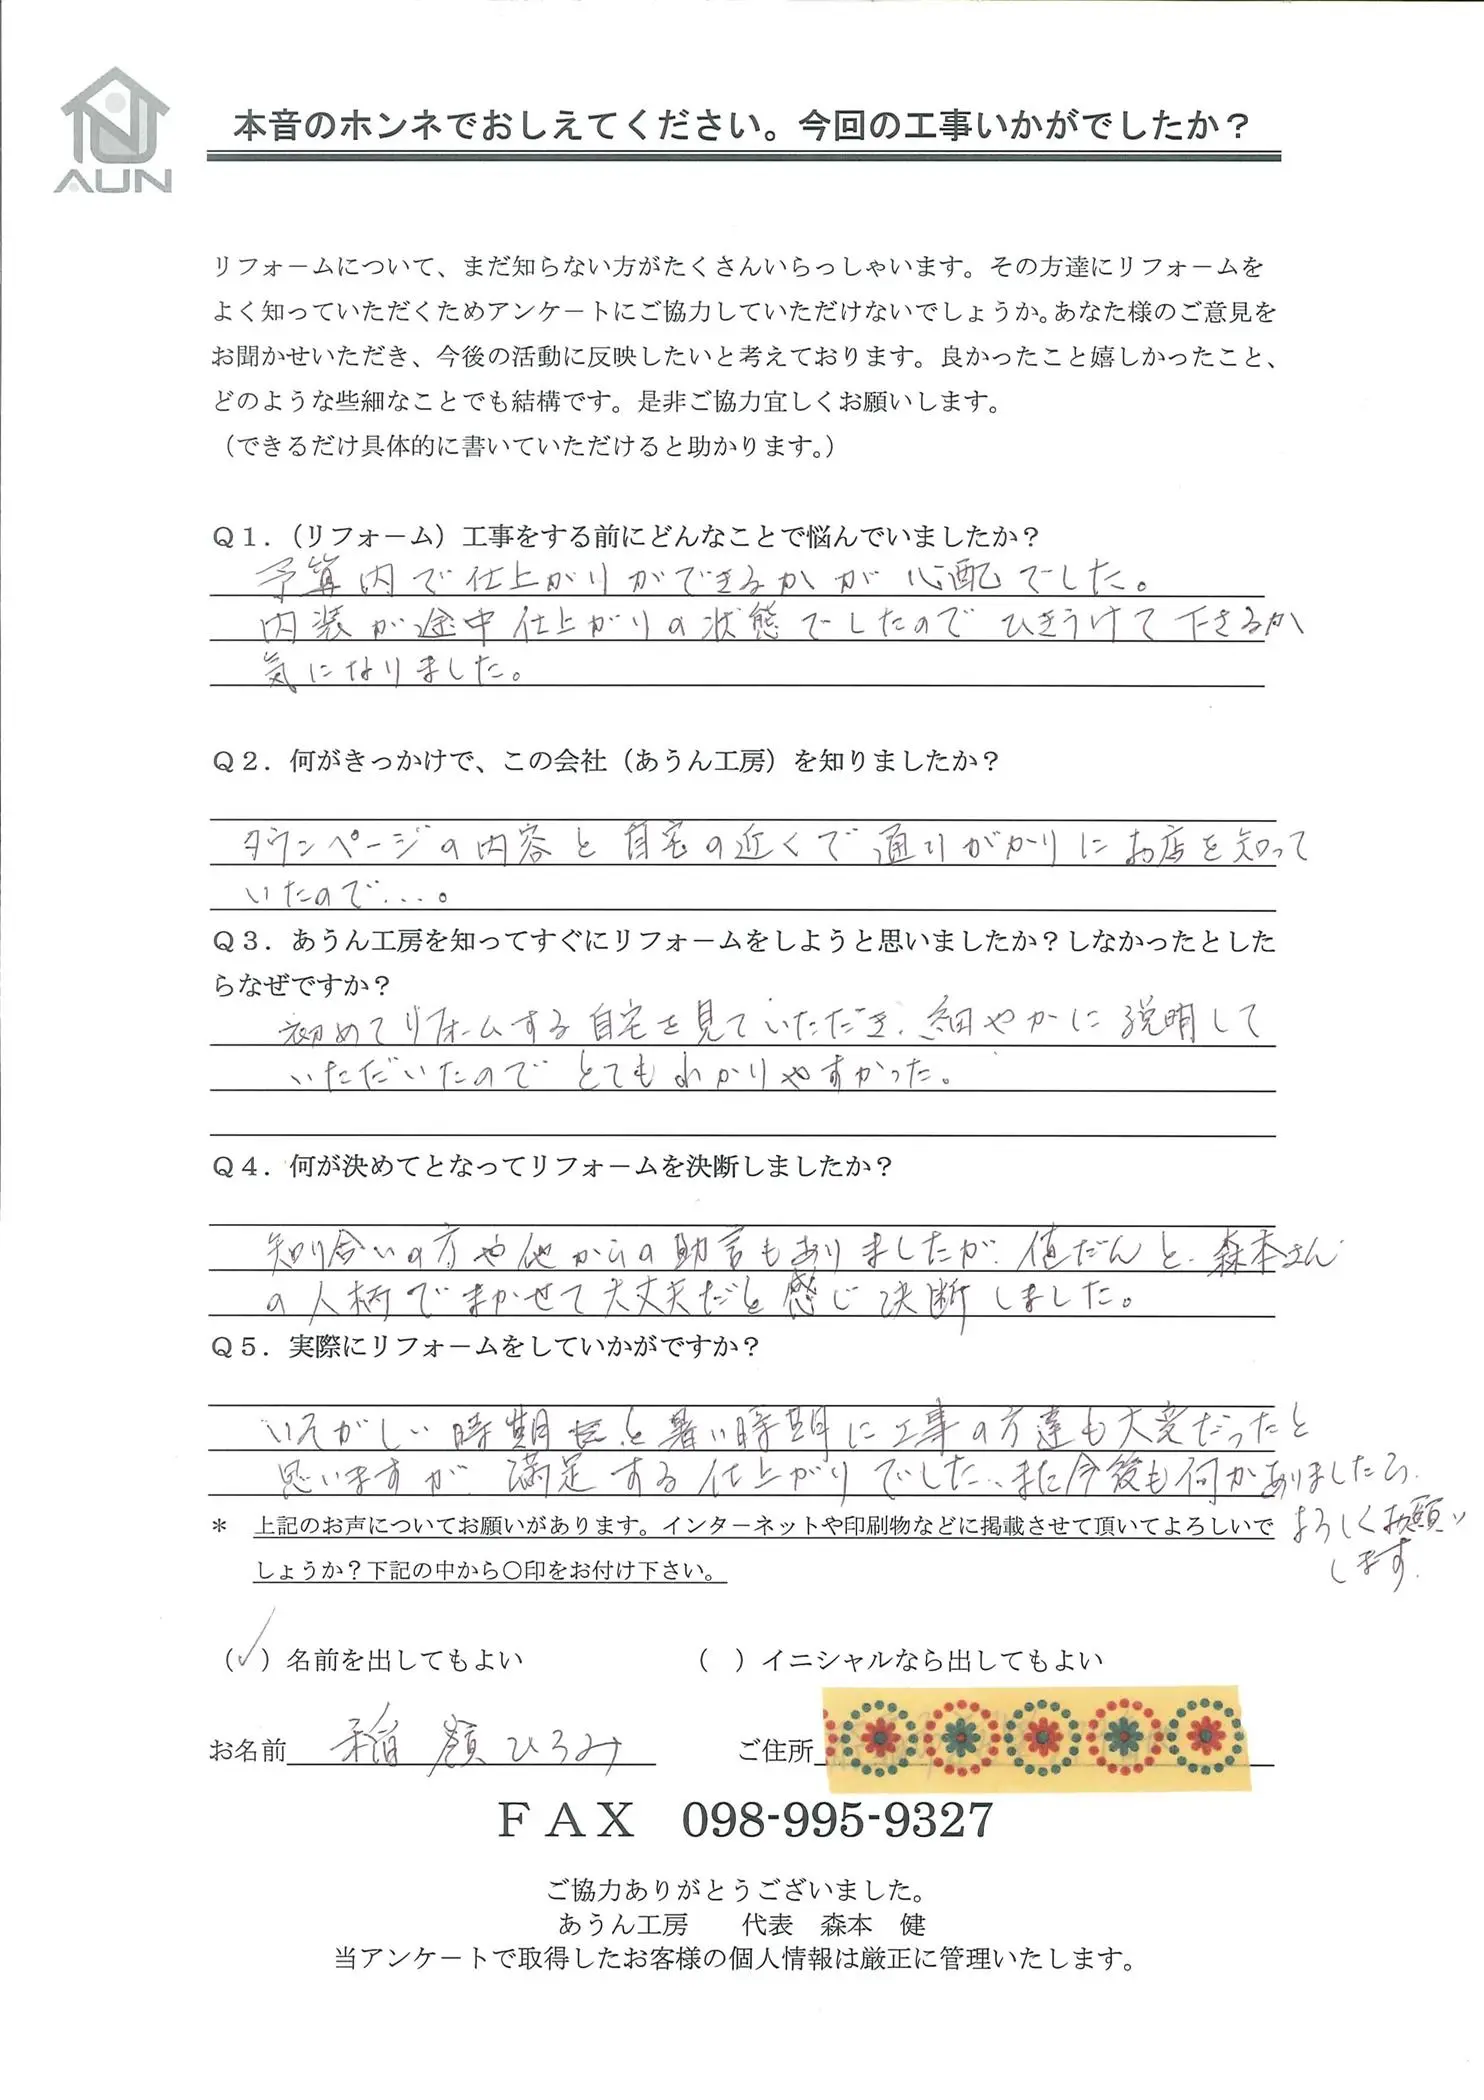 AUN
本音のホンネでおしえてください。今回の工事いかがでしたか？
リフォームについて、まだ知らない方がたくさんいらっしゃいます。その方達にリフォームを
よく知っていただくためアンケートにご協力していただけないでしょうか。あなた様のご意見を
お聞かせいただき、今後の活動に反映したいと考えております。良かったこと嬉しかったこと、
どのような些細なことでも結構です。是非ご協力宜しくお願いします。
（できるだけ具体的に書いていただけると助かります。）
Ｑ１．（リフォーム）工事をする前にどんなことで悩んでいましたか？
予算内で仕上がりができるかが心配でした。
内装が途中仕上がりの状態でしたのでひきうけて下さるか
気になりました。
Ｑ２．何がきっかけで、この会社（あうん工房）を知りましたか？
タウンページの内容と自宅の近くで通りがかりにお店を知って
いたので・・・。
Ｑ３．あうん工房を知ってすぐにリフォームをしようと思いましたか？しなかったとした
らなぜですか？
初めてリフォームする自宅を見ていただき、細やかに説明して
いただいたのでとてもわかりやすかった。
Ｑ４．何が決めてとなってリフォームを決断しましたか？
知り合いの方や他からの助言もありましたが、値だんと、森本さん
の人柄でまかせて大丈夫だと感じ決断しました。
Ｑ５．実際にリフォームをしていかがですか？
いそがしい時期と暑い時期に工事の方達も大変だったと
思いますが、満足する仕上がりでした、また今後も何かありましたら、
よろしくお願い
します。
＊　上記のお声についてお願いがあります。インターネットや印刷物などに掲載させて頂いてよろしいで
しょうか？下記の中から〇印をお付け下さい。
（✓）名前を出してもよい　（　）イニシャルなら出してもよい
お名前 稲嶺ひろみ　ご住所
ＦＡＸ　098-995-9327
ご協力ありがとうございました。
あうん工房　代表　森本　健
当アンケートで取得したお客様の個人情報は厳正に管理いたします。